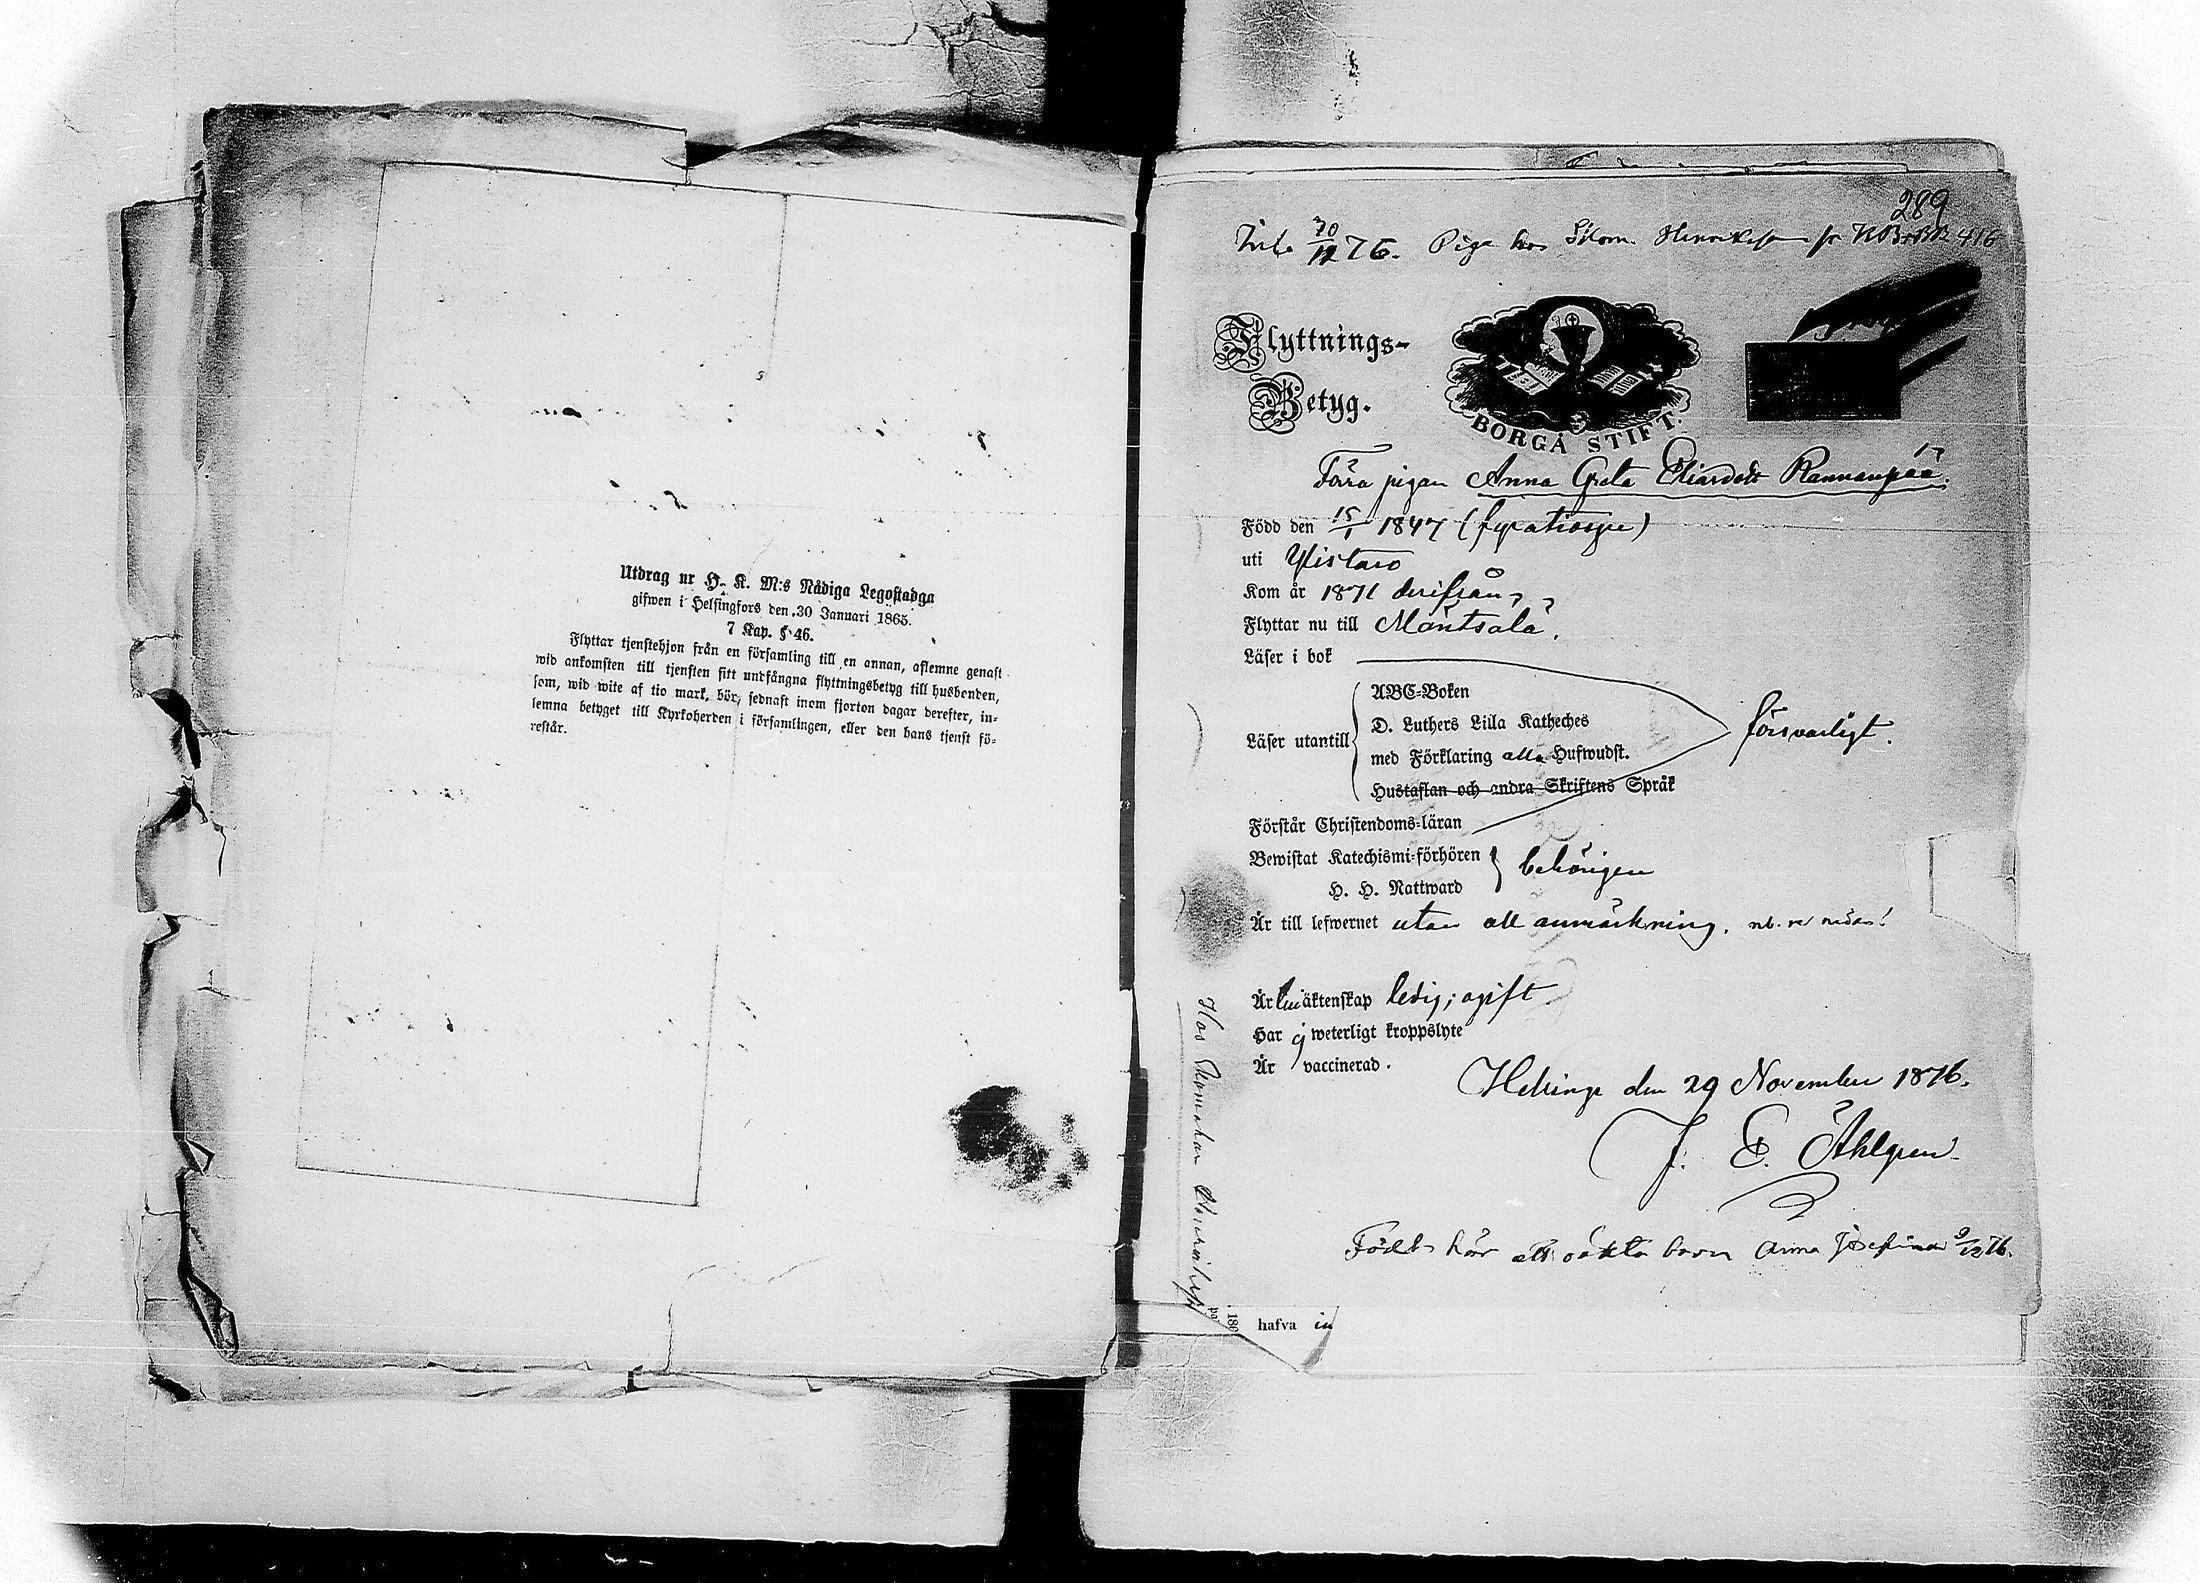 Utdrag ur H. K. M:s Nådiga Legostadga
gifwen i Helsingfors den 30 Januari 1865.
7 Kap. § 46.
Flyttar tjenstehjon från en församling till en annan, aflemne genast
wid ankomsten till tjensten sitt undfångna flyttningsbetyg till husbonden,
som, wid wite af tio mark, bör, sednast inom fjorton dagar derefter, in-
lemna betyget till Kyrkoherden i församlingen, eller den hans tjenst fö-
restår.
289
30/12 76. Piga hos 416
Flyttnings-
Betyg.
BORGÅ STIFT.
Förra pigan Anna Greta Eliasdotr Rannanpää.
Född den 15/1 1847 (fyratiosju)
uti Ylistaro
Kom år 1871 derifrån,
Flyttar nu till Mäntsälä.
Läser i bok
Läser utantill
ABC-Boken
D. Luthers Lilla Katheches
med Förklaring alla Hufwudst.
Hustaflan och andra Skriftens Språk
försvarligt.
Förstår Christendoms-läran
Bewistat Katechismi-förhören
H. H. Nattward
behörigen
Är till lefwernet utan all anmärkning. nb. nedan!
Är äktenskap ledig; ogift
Har ej weterligt kroppslyte
Är vaccinerad.
Helsinge den 29 November 1876.
J. E. Åhlgren
Född här oäkta barn Anna Josefina 9/12 76.
Hos
180
hafva in